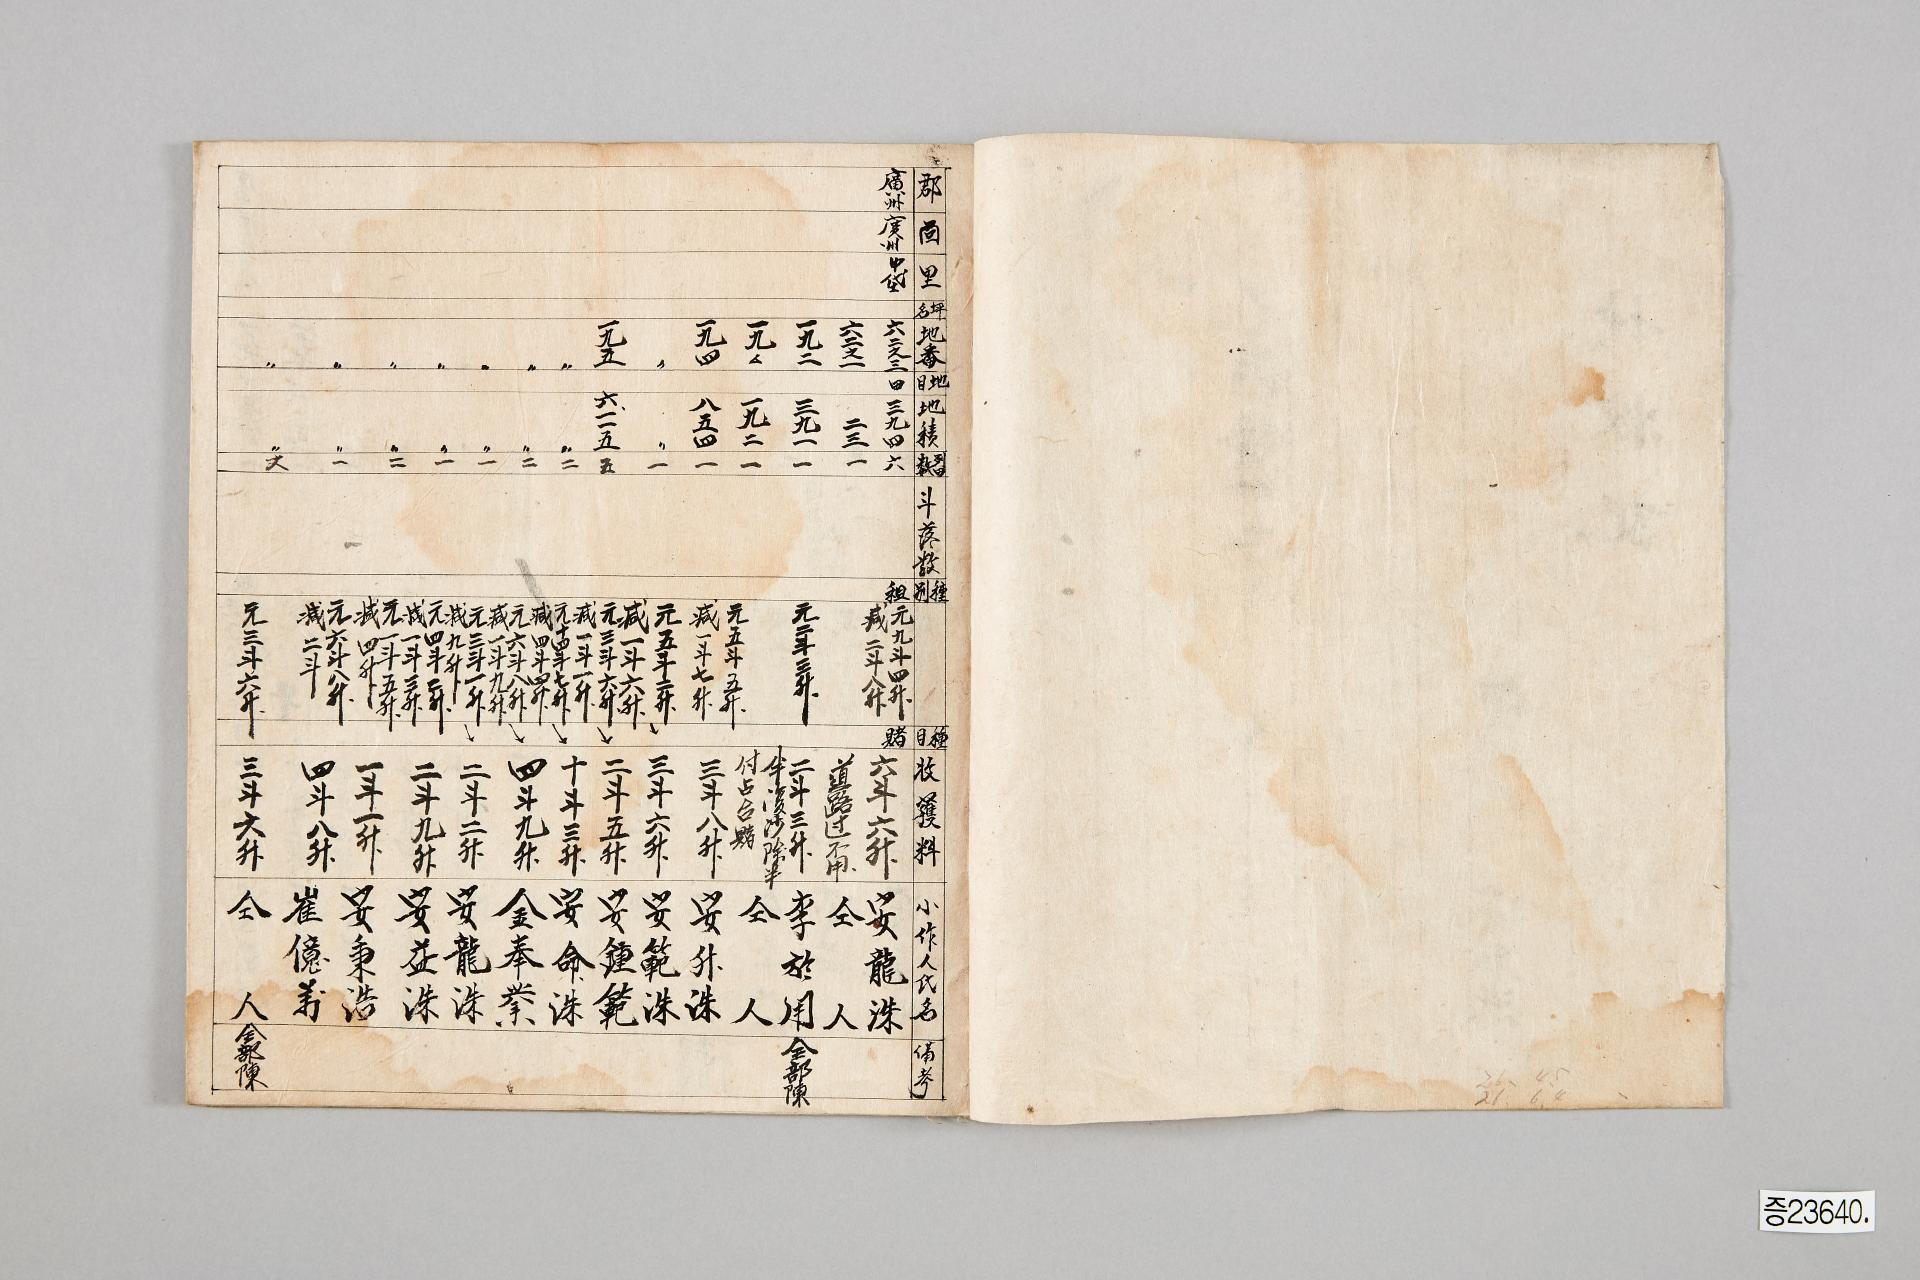 郡 面 里 坪名 地番 地目 地積 列畓數 斗落數 種別 種目 收穫料 小作人氏名 備考
廣州 廣州 中垈 六二之三 田 三九四 六 租 元九斗四升 減二斗八升 賭 六斗六升 安龍洙
六二之一 二三 一 道路过不用 仝人
一九二 三九一 一 元二斗三升 二斗三升 李於用 全部陳
一九 一九二 一 半浸沙除半 付占合賭 仝人
一九四 八五四 一 元五斗五升 減一斗七升 三斗八升 安升洙
〃 〃 一 元五斗二升 減一斗六升 三斗六升 安範洙
一九五 六一一五 五 元三斗六升 減一斗一升 二斗五升 安鍾範
〃 〃 二 元十四斗七升 減四斗四升 十斗三升 安命洙
〃 〃 二 元六斗八升 減一斗九升 四斗九升 金奉業
〃 〃 一 元三斗一升 減九升 二斗二升 安龍洙
〃 〃 一 元四斗二升 減一斗三升 二斗九升 安益洙
〃 〃 二 元一斗五升 減四升 一斗一升 安秉浩
〃 〃 一 元六斗八升 減二斗 四斗八升 崔億萬
〃 〃 元三斗六升 三斗六升 仝人 全部陳
26. 45
21. 6.4
증23640.